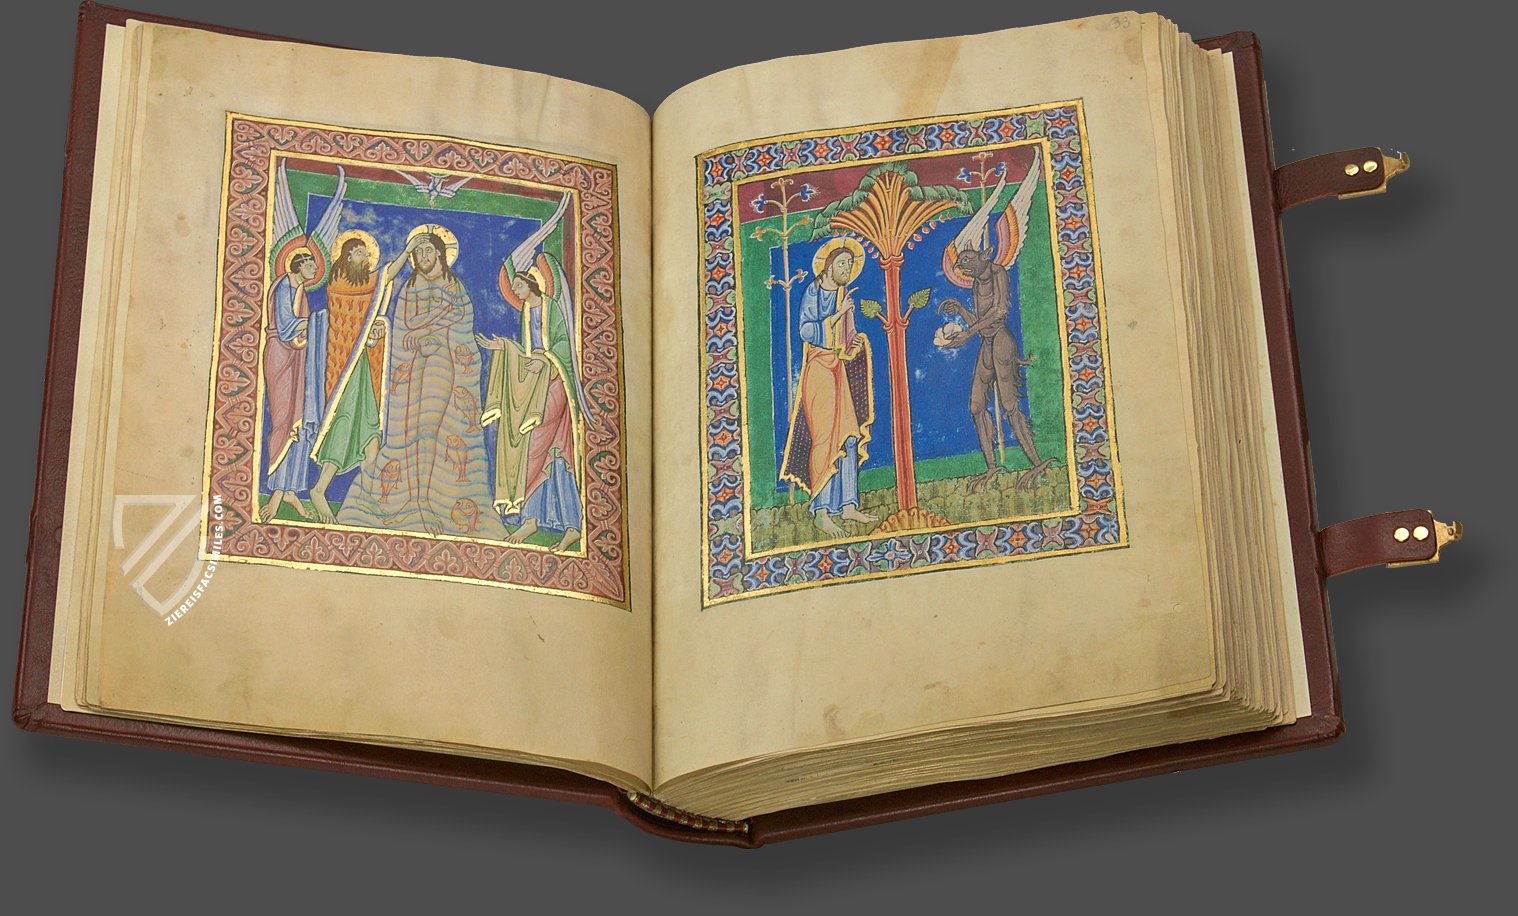 33
ZIEREISFACSIMILES.COM